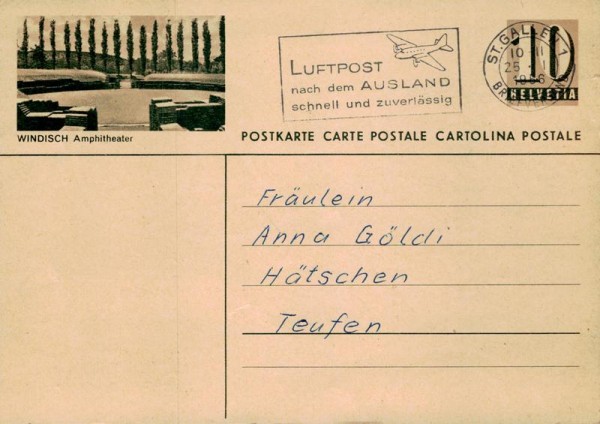 WINDISCH Amphitheater
LUFTPOST
nach dem AUSLAND
schnell und zuverlässig
ST. GALLEN 1
1956
10
HELVETIA
POSTKARTE CARTE POSTALE CARTOLINA POSTALE
Fräulein
Anna Göldi
Hätschen
Teufen